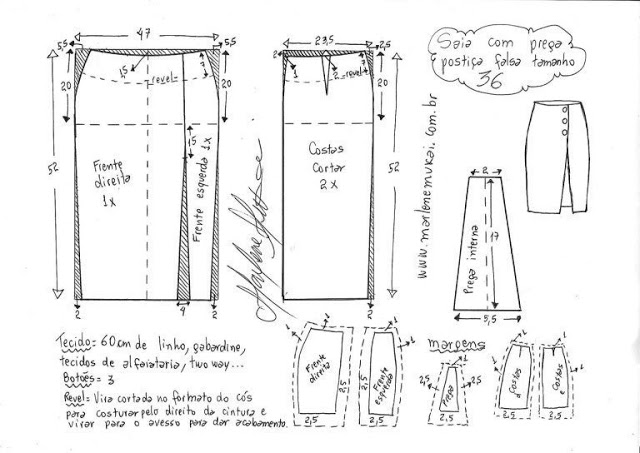 Saia com prega
postiça falsa tamanho
36
www.marlenemukai.com.br
47
5,5
5,5
20
20
52
1,5
revel=
7
15
Frente
direita
1x
Frente esquerda 1x
2
4
2
23,5
2,5
2
1
2
revel=
7
20
52
Costas
Cortar
2x
2
2
17
Prega interna
5,5
margens
1
1
Frente
direita
2,5
2,5
1
1
Frente
esquerda
2,5
1
2,5
2,5
Prega
2,5
1
1
Costas
d
2,5
1
1
Costas
e
2,5
Tecido= 60cm de linho, gabardine,
tecidos de alfaiataria, two way...
Botões= 3
Revel= Vira cortada no formato do cós
para costurar pelo direito da cintura e
virar para o avesso para dar acabamento.